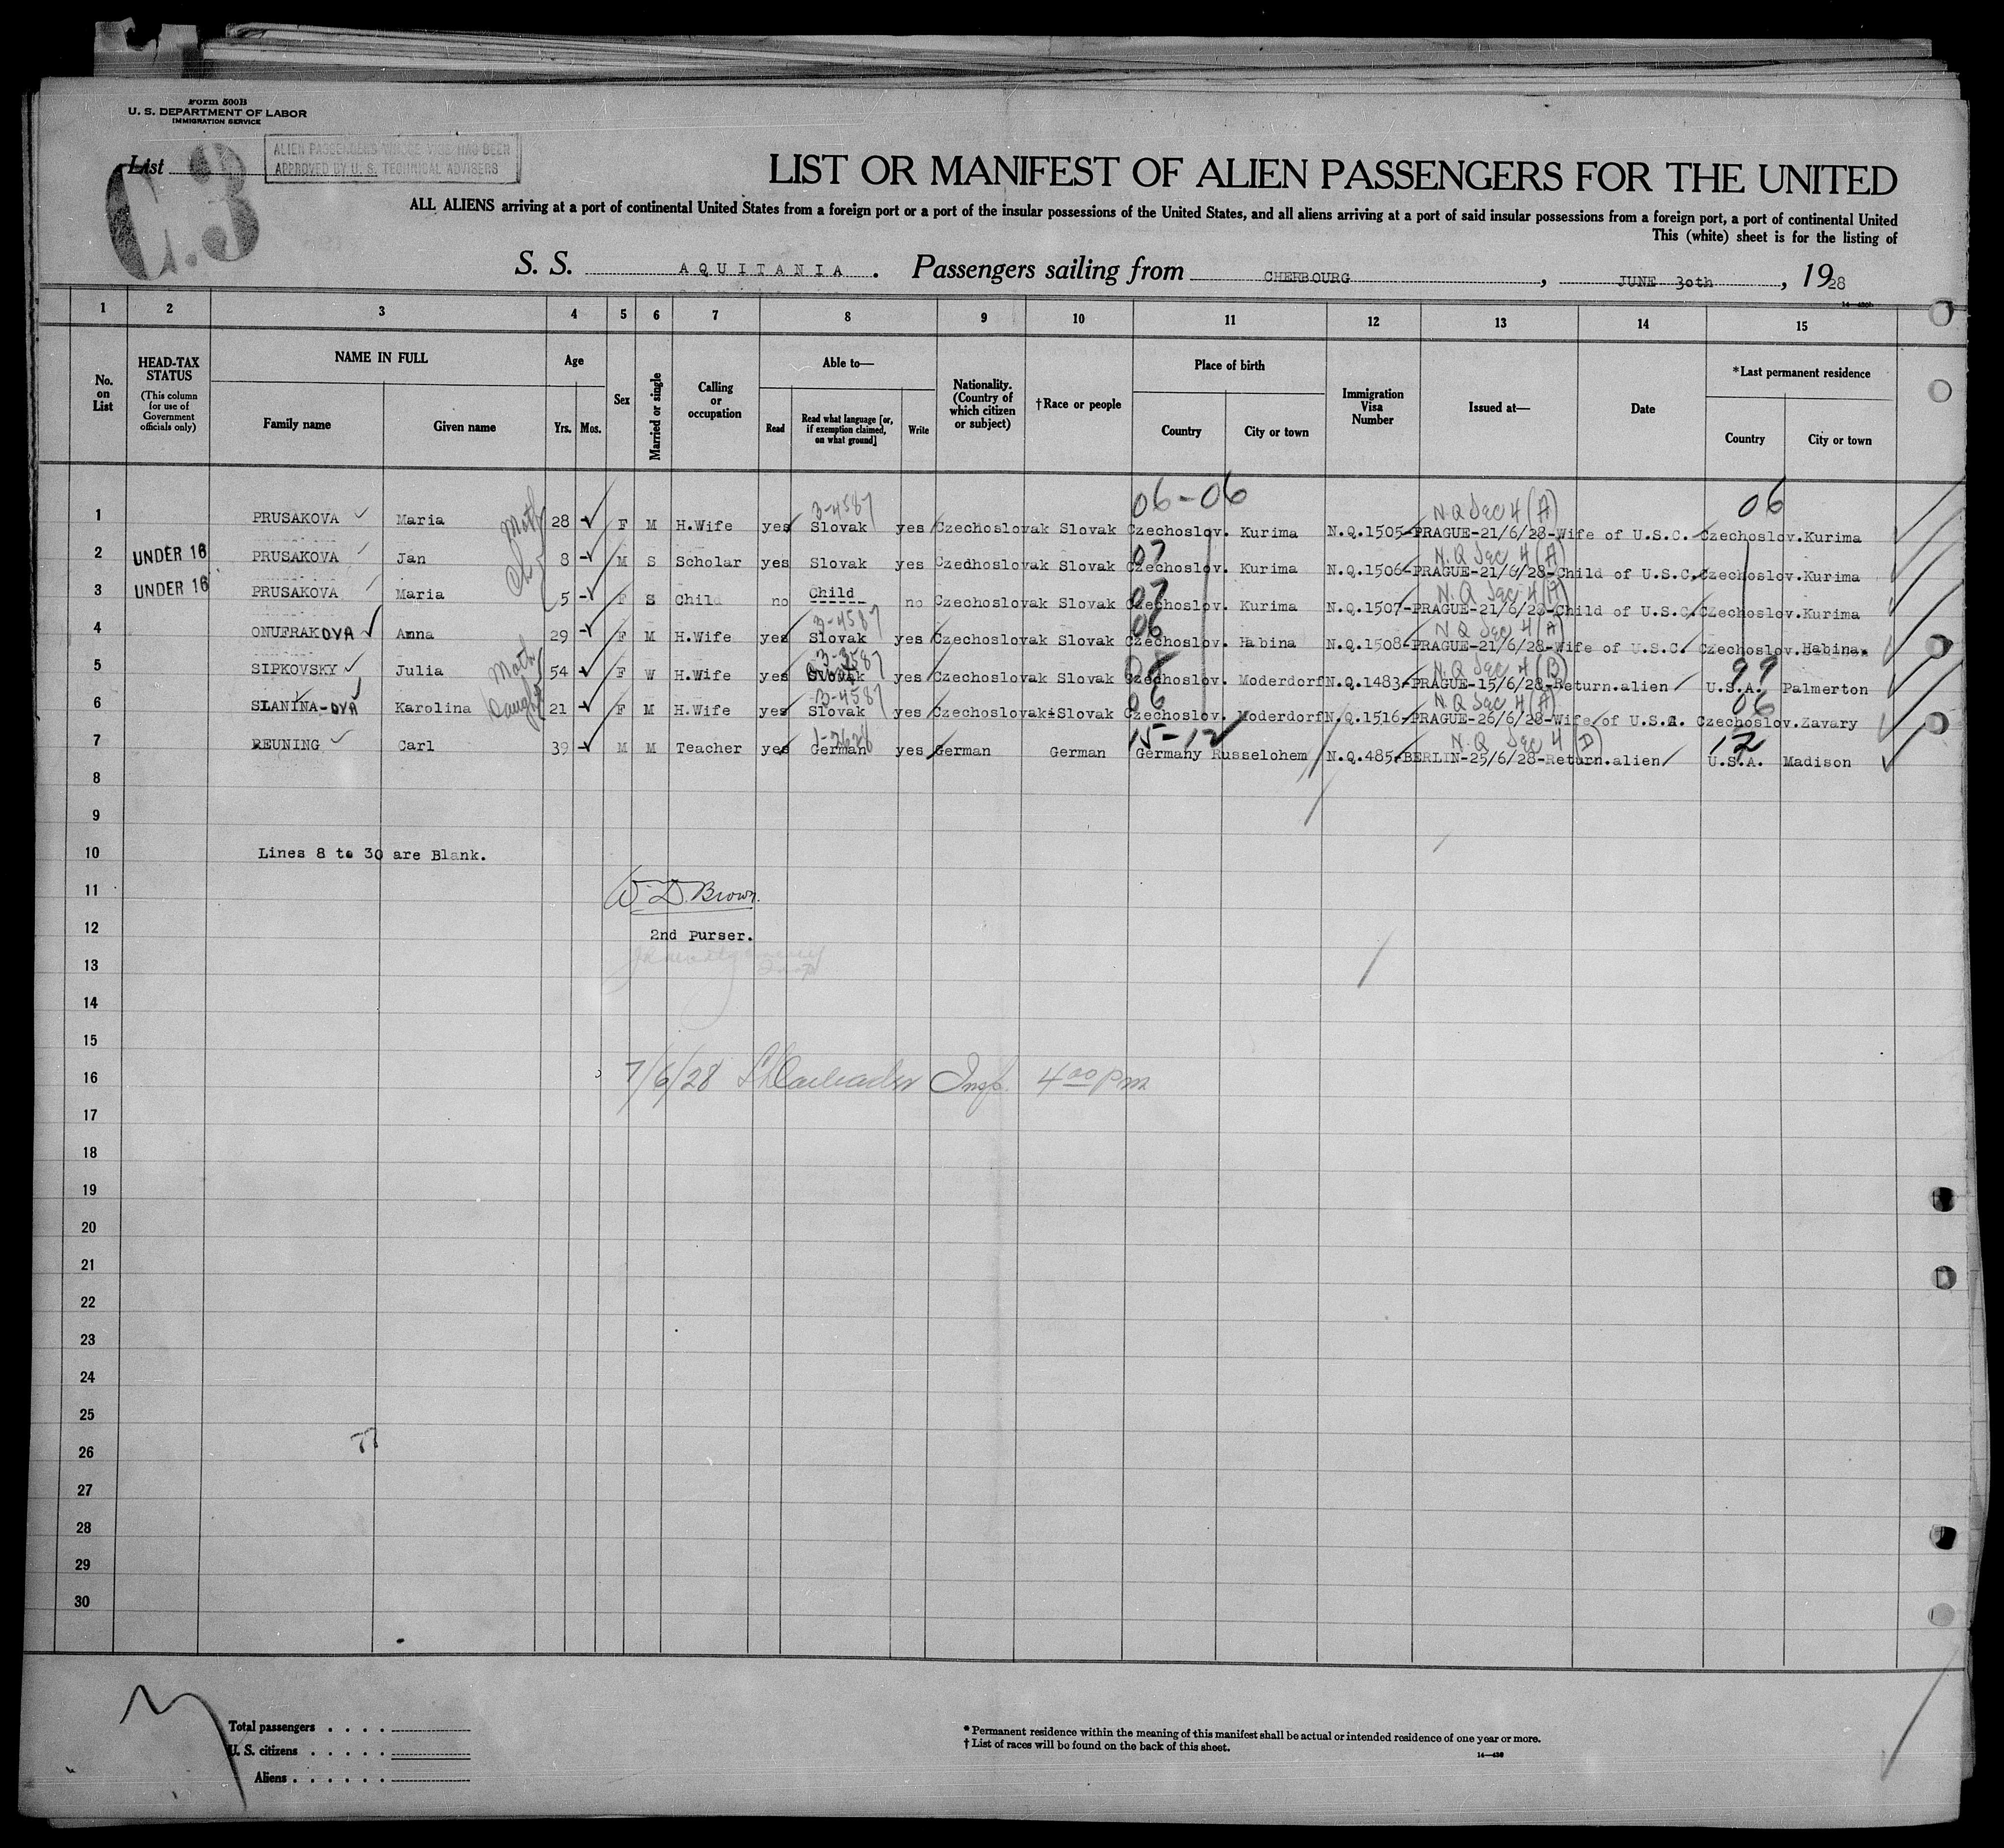 Form 500B
U. S. DEPARTMENT OF LABOR
IMMIGRATION SERVICE
List
C.3
ALIEN PASSENGERS WHOSE VISE HAS BEEN
APPROVED BY U. S. TECHNICAL ADVISERS
LIST OR MANIFEST OF ALIEN PASSENGERS FOR THE UNITED
ALL ALIENS arriving at a port of continental United States from a foreign port or a port of the insular possessions of the United States, and all aliens arriving at a port of said insular possessions from a foreign port, a port of continental United
This (white) sheet is for the listing of
S. S. AQUITANIA . Passengers sailing from CHERBOURG , JUNE 30th , 1928
1 2 3 4 5 6 7 8 9 10 11 12 13 14 15
No. on List
HEAD-TAX STATUS
(This column for use of Government officials only)
NAME IN FULL
Family name Given name
Age
Yrs. Mos.
Sex
Married or single
Calling or occupation
Able to—
Read
Read what language [or, if exemption claimed, on what ground]
Write
Nationality. (Country of which citizen or subject)
†Race or people
Place of birth
Country City or town
Immigration Visa Number
Issued at—
Date
*Last permanent residence
Country City or town
3-4587 06-06 N.Q Sec 4 (A) 06
1 PRUSAKOVA Maria Moth 28 F M H.Wife yes Slovak yes Czechoslovak Slovak Czechoslov. Kurima N.Q.1505-PRAGUE-21/6/28-Wife of U.S.C. Czechoslov.Kurima
07 N.Q Sec 4 (A)
2 UNDER 16 PRUSAKOVA Jan 8 M S Scholar yes Slovak yes Czedhoslovak Slovak Czechoslov. Kurima N.Q.1506-PRAGUE-21/6/28-Child of U.S.C. Czechoslov.Kurima
07 N.Q Sec 4 (A)
3 UNDER 16 PRUSAKOVA Maria 5 F S Child no Child no Czechoslovak Slovak Czechoslov. Kurima N.Q.1507-PRAGUE-21/6/28-Child of U.S.C. Czechoslov.Kurima
3-4587 06 N.Q Sec 4 (A)
4 ONUFRAKOVA Anna 29 F M H.Wife yes Slovak yes Czechoslovak Slovak Czechoslov. Habina N.Q.1508-PRAGUE-21/6/28-Wife of U.S.C. Czechoslov.Habina.
N.Q Sec 4 (B) 99
5 SIPKOVSKY Julia Moth 54 F W H.Wife yes Slovak yes Czechoslovak Slovak Czechoslov. Moderdorf N.Q.1483-PRAGUE-15/6/28-Return.alien U.S.A. Palmerton
3-4587 06 N.Q Sec 4 (A) 06
6 SLANINA-OVA Karolina Daught 21 F M H.Wife yes Slovak yes Czechoslovak Slovak Czechoslov. Moderdorf N.Q.1516-PRAGUE-26/6/28-Wife of U.S.A. Czechoslov.Zavary
15-12 N.Q Sec 4 (D) 12
7 REUNING Carl 39 M M Teacher yes German yes German German Germany Russelohem N.Q.485-BERLIN-25/6/28-Return.alien U.S.A. Madison
8
9
10 Lines 8 to 30 are Blank.
11 W. D. Brown.
12 2nd Purser.
13
14
15
16 7/6/28 Insp. 4 00 pm
17
18
19
20
21
22
23
24
25
26
27
28
29
30
Total passengers . . . .
U. S. citizens . . . . .
Aliens . . . . . .
* Permanent residence within the meaning of this manifest shall be actual or intended residence of one year or more.
† List of races will be found on the back of this sheet.
14—430